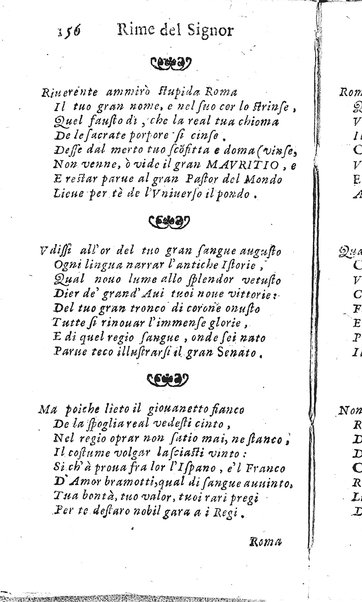 156 Rime del Signor
Riuerente ammirò stupida Roma
Il tuo gran nome, e nel suo cor lo strinse,
Quel fausto dì, che la real tua chioma
De le sacrate porpore si cinse.
Desse dal merto tuo scõfitta e doma (vinse,
Non venne, ò vide il gran MAVRITIO, e
E restar parue al gran Pastor del Mondo
Lieue per tè de l'Vniuerso il pondo.
Vdissi all'or del tuo gran sangue augusto
Ogni lingua narrar l'antiche Istorie,
Qual nouo lume allo splendor vetusto
Dier de' grand'Aui tuoi noue vittorie:
Del tuo gran tronco di corone onusto
Tutte si rinouar l'immense glorie,
E di quel regio sangue, onde sei nato
Parue teco illustrarsi il gran Senato.
Ma poiche lieto il giouanetto fianco
De la spoglia real vedesti cinto,
Nel regio oprar non satio mai, ne stanco,
Il costume volgar lasciasti vinto:
Si ch'à proua fra lor l'Ispano, e'l Franco
D'Amor bramotti, qual di sangue auuinto,
Tua bontà, tuo valor, tuoi rari pregi
Per te destaro nobil gara a i Regi.
Roma